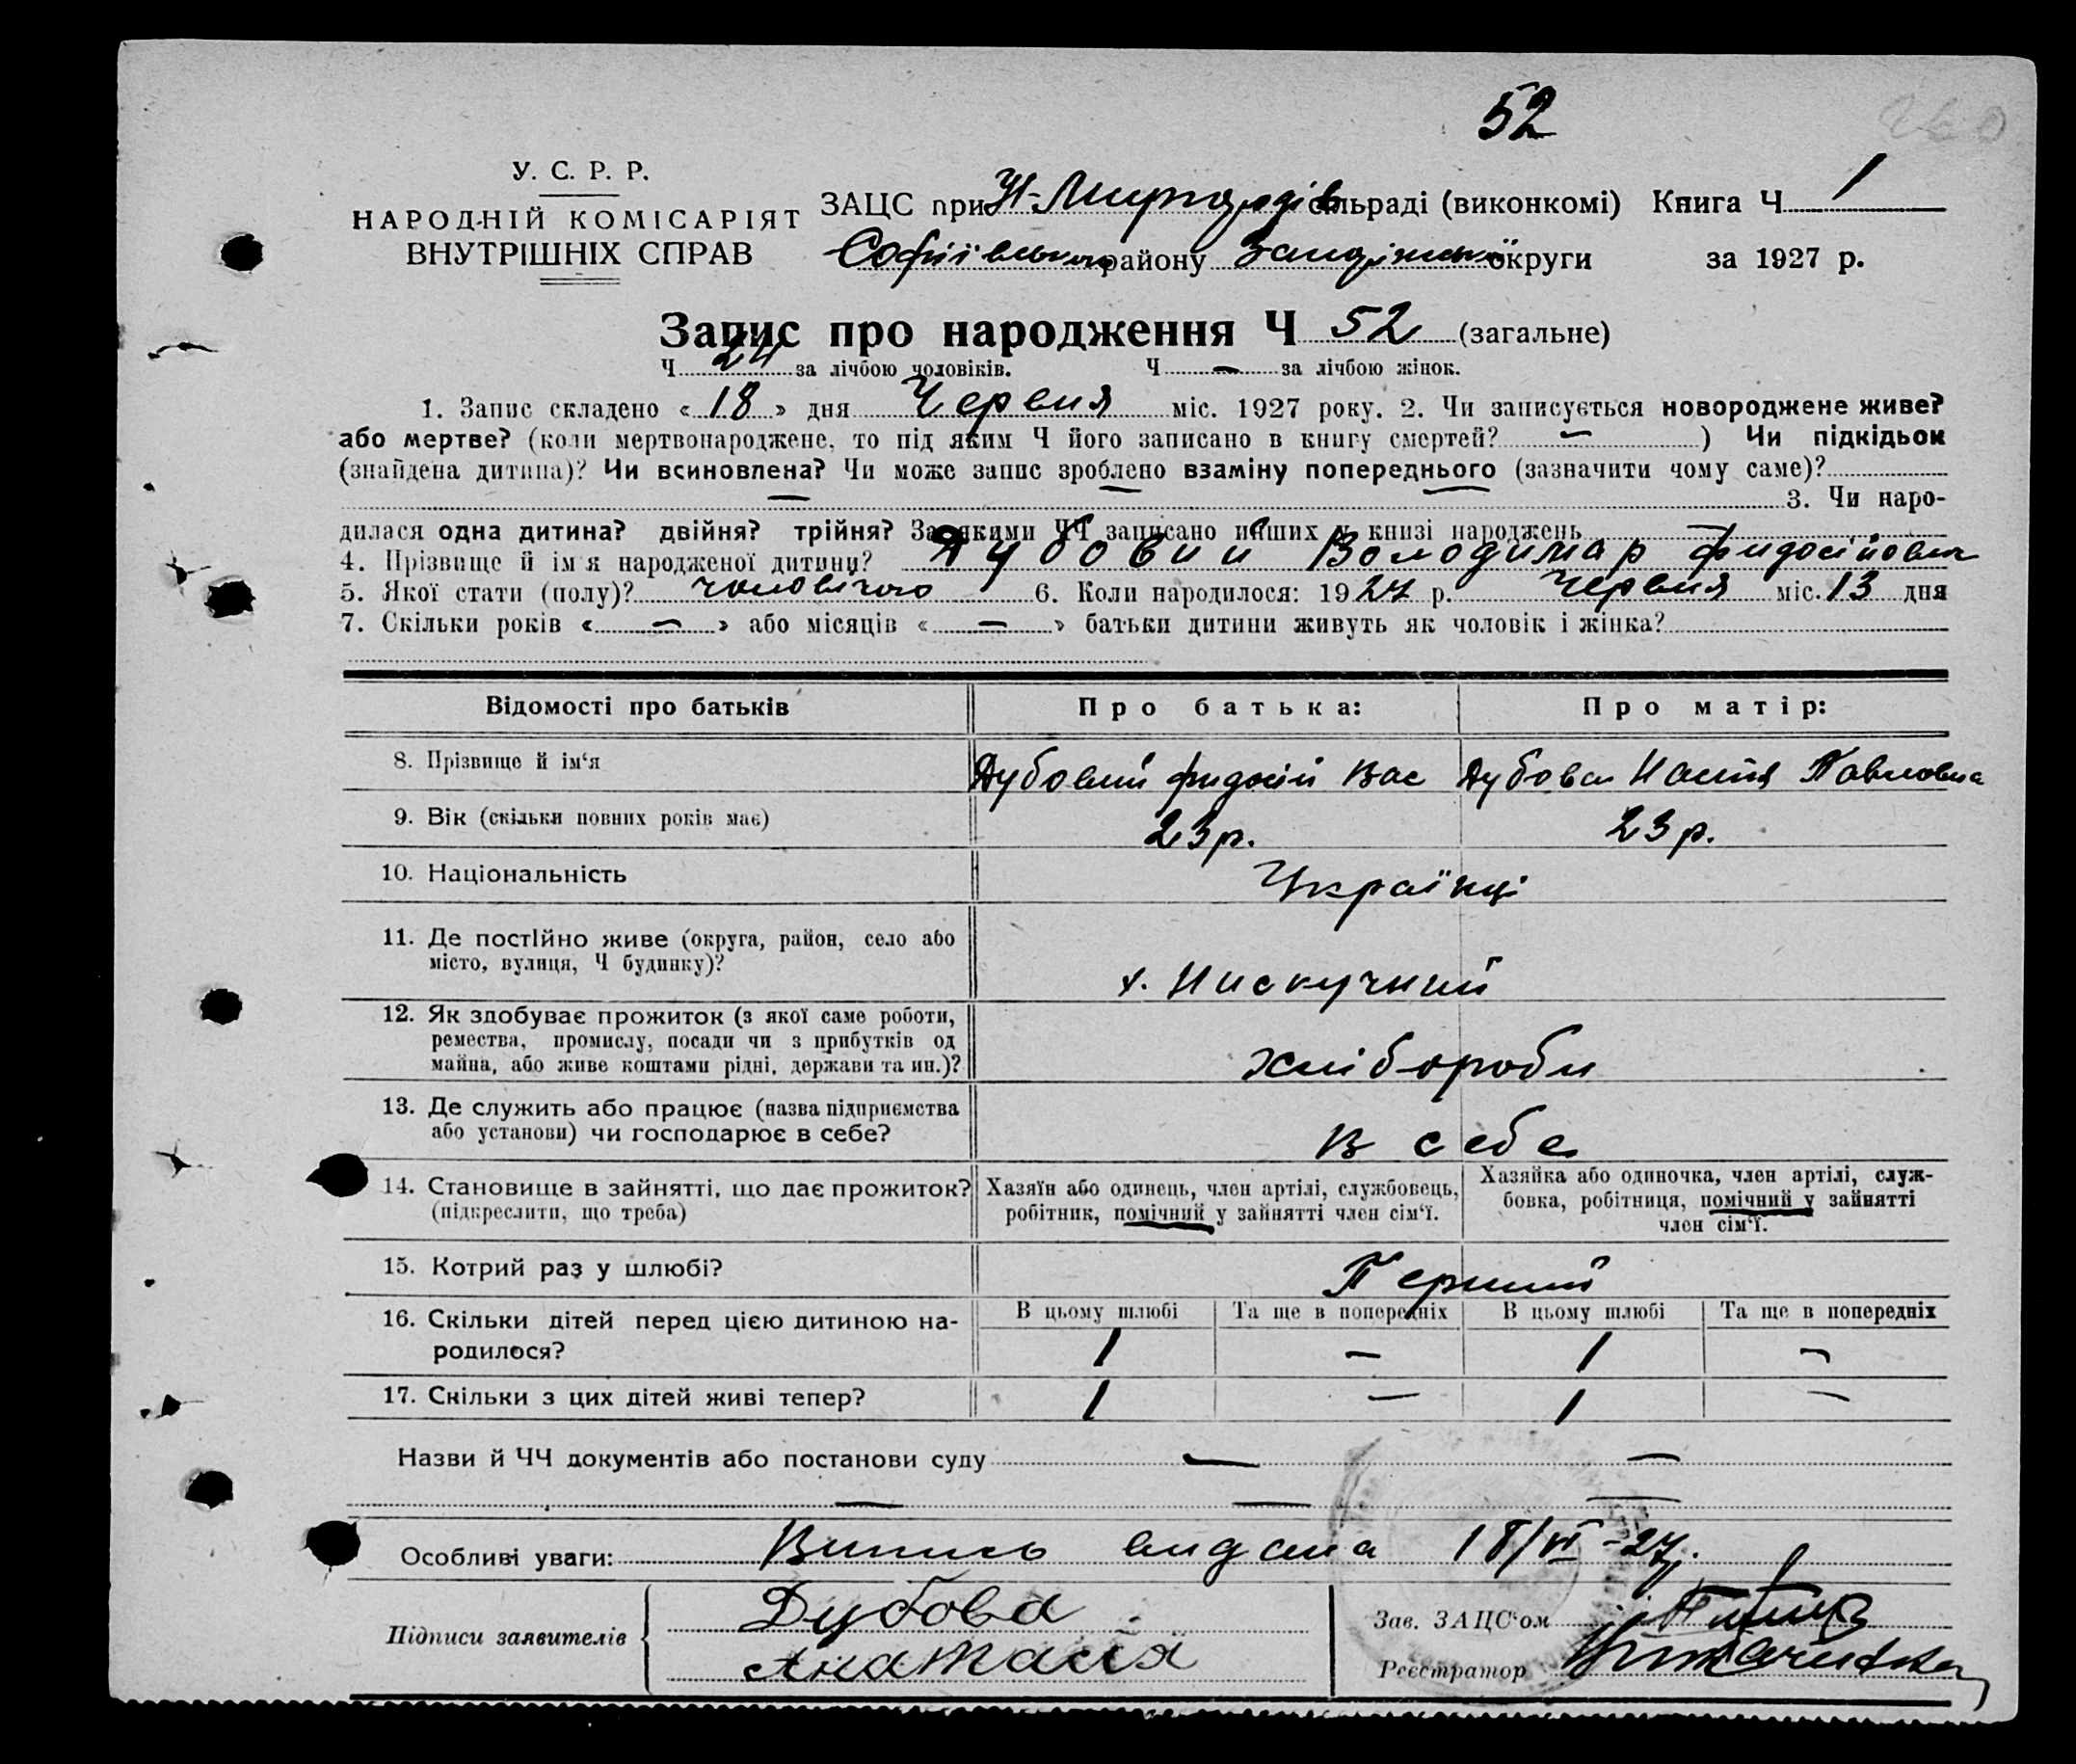 52
У. С. Р. Р.
НАРОДНІЙ КОМІСАРІЯТ
ВНУТРІШНІХ СПРАВ
ЗАЦС при сільраді (виконкомі) Книга Ч 1
Софіївського району округи за 1927 р.
Запис про народження Ч 52 (загальне)
Ч 24 за лічбою чоловіків. Ч — за лічбою жінок.
1. Запис складено « 18 » дня Червня міс. 1927 року. 2. Чи записується новороджене живе?
або мертве? (коли мертвонароджене, то під яким Ч його записано в книгу смертей? — ) Чи підкідьок
(знайдена дитина)? Чи всиновлена? Чи може запис зроблено взаміну попереднього (зазначити чому саме)?
— — — 3. Чи наро-
дилася одна дитина? двійня? трійня? За якими ЧЧ записано инших у книзі народжень —
4. Прізвище й ім'я народженої дитини? Дубовий Володимар Фидосійович
5. Якої стати (полу)? чоловічого 6. Коли народилося: 1927 р. Червня міс. 13 дня
7. Скільки років « — » або місяців « — » батьки дитини живуть як чоловік і жінка?
Відомості про батьків Про батька: Про матір:
8. Прізвище й ім'я Дубовий Фидосій Вас Дубова Настя Павловна
9. Вік (скільки повних років має) 23 р. 23 р.
10. Національність Українці
11. Де постійно живе (округа, район, село або
місто, вулиця, Ч будинку)? х. Нискучний
12. Як здобуває прожиток (з якої саме роботи,
ремества, промислу, посади чи з прибутків од
майна, або живе коштами рідні, держави та ин.)? хлібороби
13. Де служить або працює (назва підприємства
або установи) чи господарює в себе? в себе
14. Становище в зайнятті, що дає прожиток?
(підкреслити, що треба)
Хазяїн або одинець, член артілі, службовець,
робітник, помічний у зайнятті член сім'ї.
Хазяйка або одиночка, член артілі, служ-
бовка, робітниця, помічний у зайнятті
член сім'ї.
15. Котрий раз у шлюбі? Перший
16. Скільки дітей перед цією дитиною на-
родилося?
В цьому шлюбі Та ще в попередніх В цьому шлюбі Та ще в попередніх
1 — 1 —
17. Скільки з цих дітей живі тепер? 1 — 1 —
Назви й ЧЧ документів або постанови суду — —
— — —
Особливі уваги: Випись видана 18/VI-27р.
Підписи заявителів Дубова
Анатасія
Зав. ЗАЦС'ом
Реєстратор